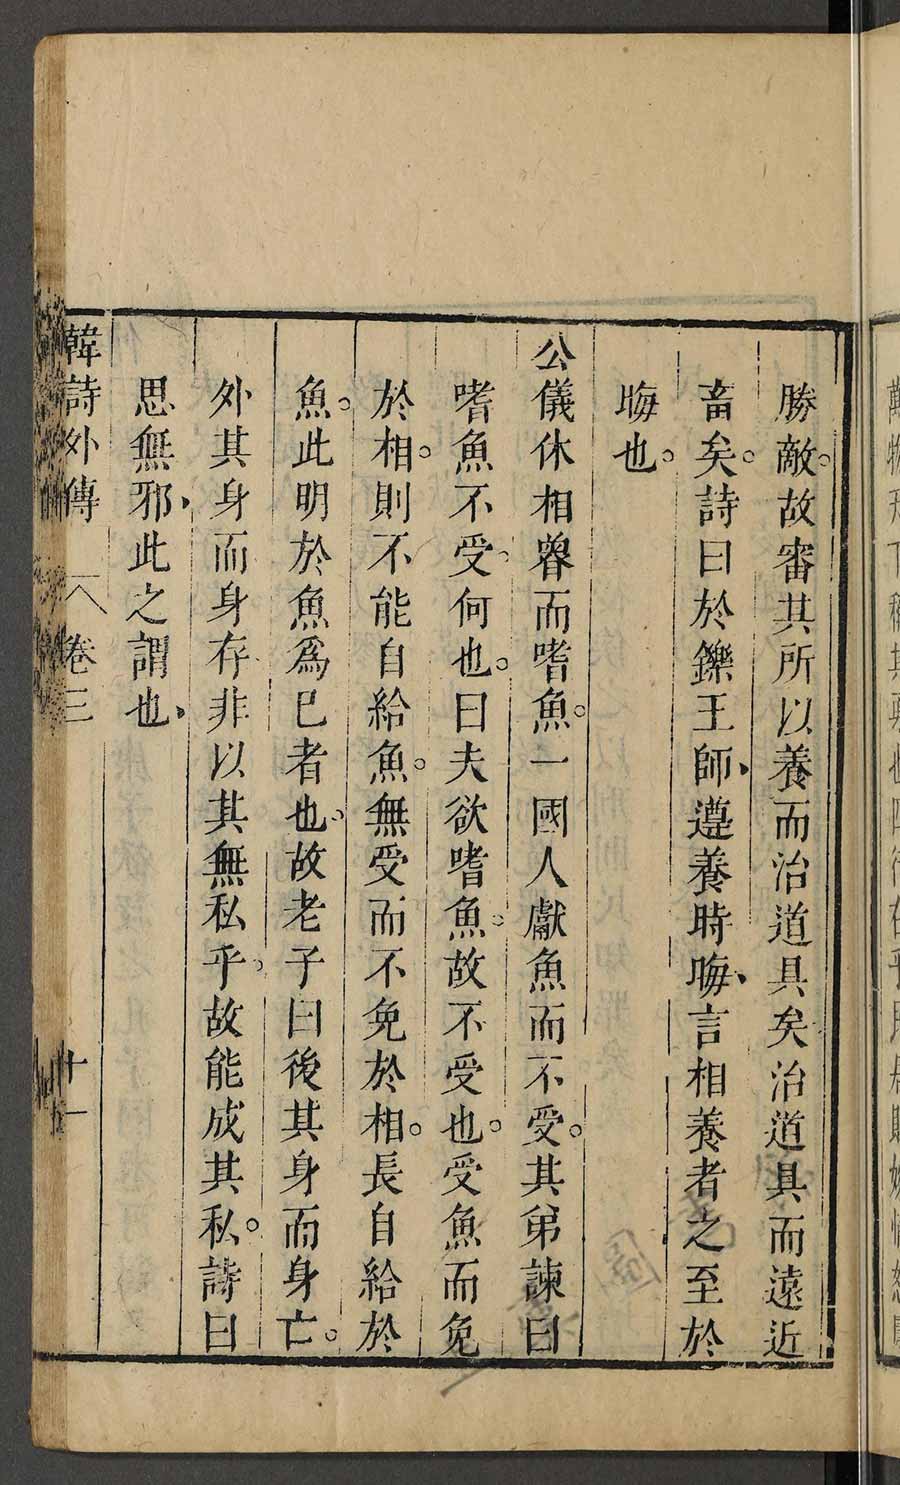 勝敵。故審其所以養而治道具矣治道具而遠近
畜矣。詩曰於鑠王師、遵養時晦、言相養者之至於
晦也。
公儀休相魯而嗜魚。一國人獻魚而不受。其弟諫曰
嗜魚不受。何也。曰夫欲嗜魚。故不受也。受魚而免
於相。則不能自給魚。無受而不免於相。長自給於
魚。此明於魚爲已者也。故老子曰後其身而身亡。
外其身而身存非以其無私乎。故能成其私。詩曰
思無邪、此之謂也、
韓詩外傳 卷三 十一